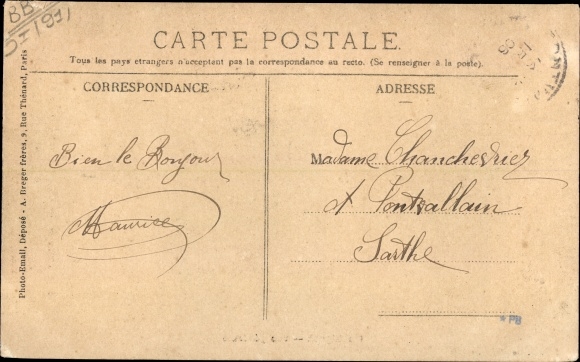 CARTE POSTALE
Tous les pays etrangers n'acceptent pas la correspondance au recto. (Se renseigner à la poste).
CORRESPONDANCE
ADRESSE
Bien le Bonjour
Maurice
Madame
à Pontvallain
Sarthe
Photo-Email, Déposé - A. Breger frères, 9, Rue Thénard, Paris
* PB